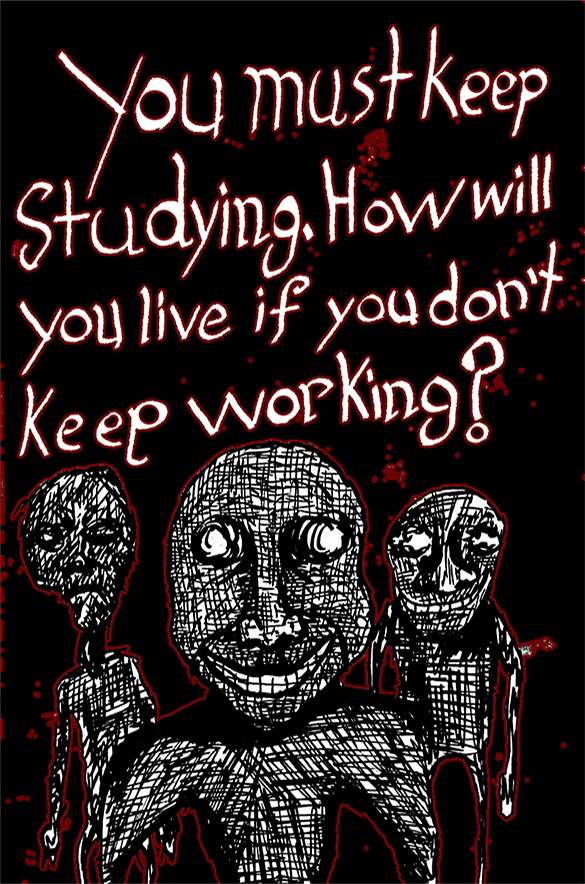 You must keep
Studying. How will
you live if you don't
keep working?